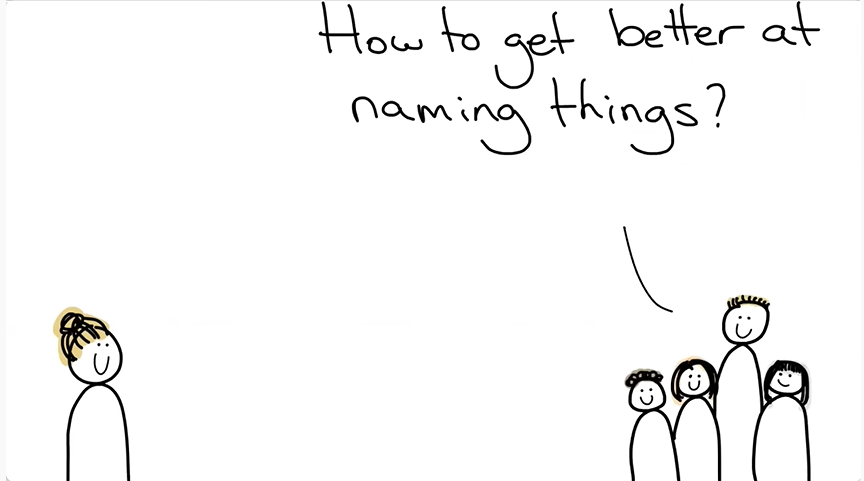 How to get better at
naming things?